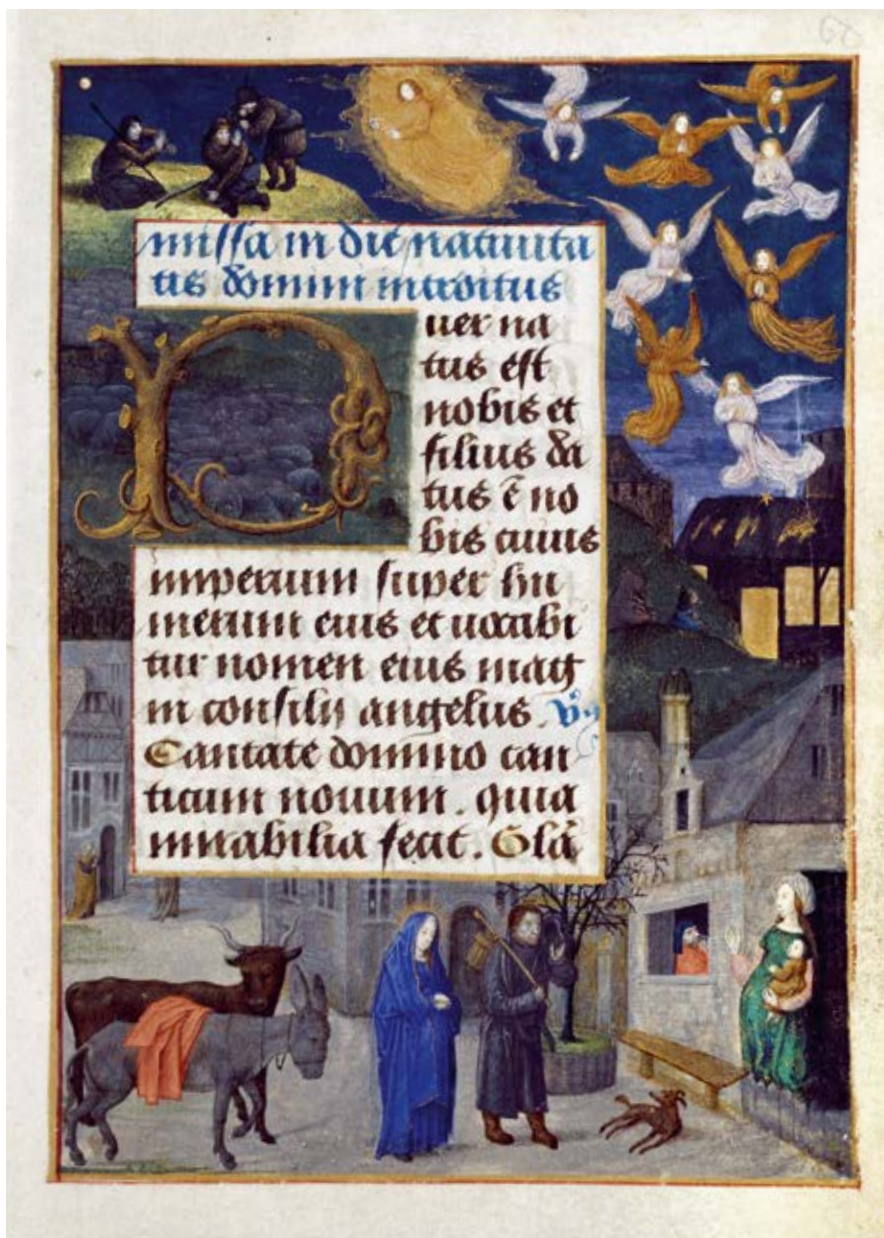 missa in die natiuita
tis domini introitus
Puer na
tus est
nobis et
filius da
tus ē no
bis cuius
imperium super hu
merum eius et uocabi
tur nomen eius mag
ni consilij angelus.
Cantate domino can
ticum nouum. quia
mirabilia fecit. Glā